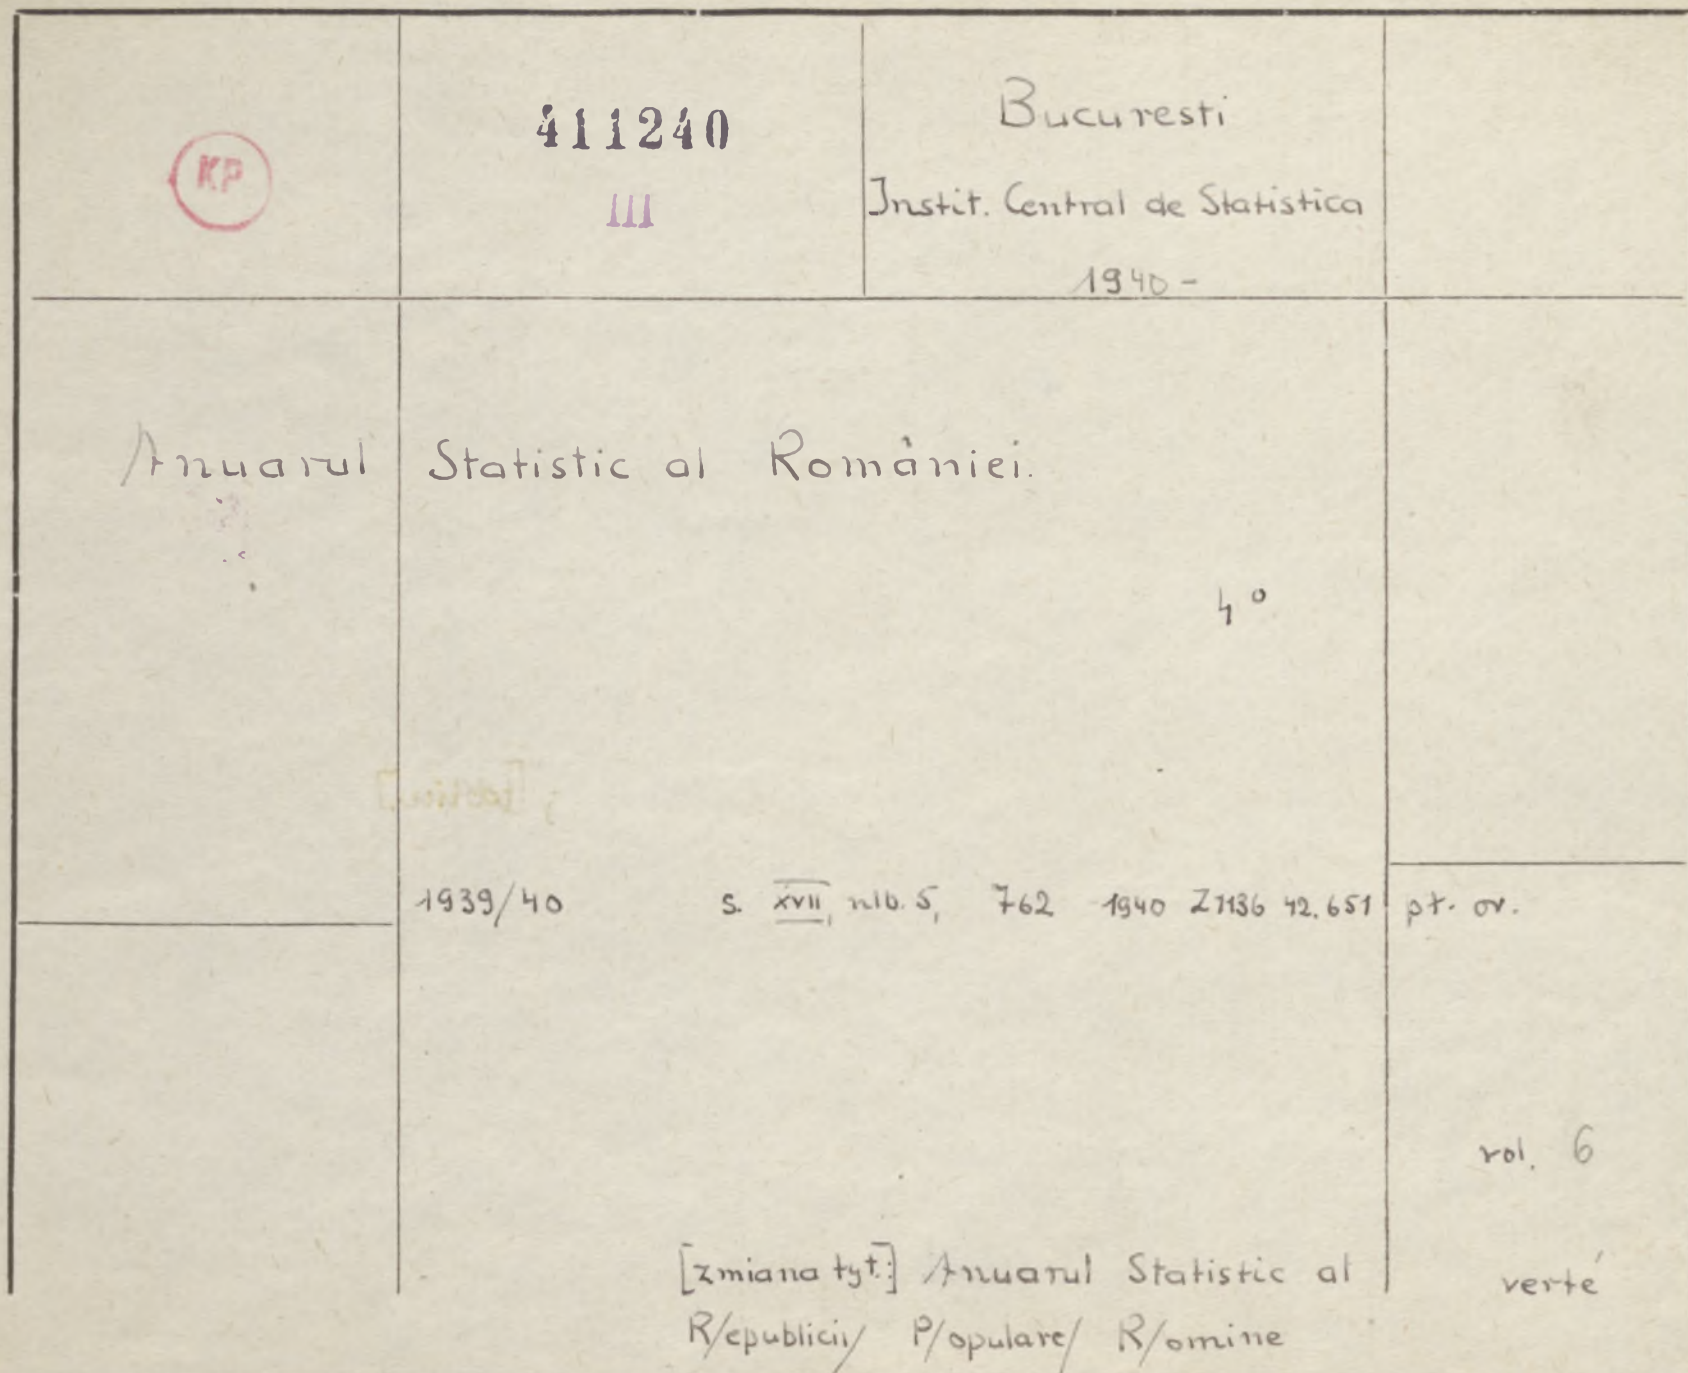 KP
411240
III
Bucuresti
Instit. Central de Statistica
1940 -
Anuarul Statistic al României.
4°
1939/40 s. XVII, nlb. 5, 762 1940 Z1136 42.651 pt. or.
vol. 6
[zmiana tyt.:] Anuarul Statistic al
R/epublicii/ P/opulare/ R/omine
verté